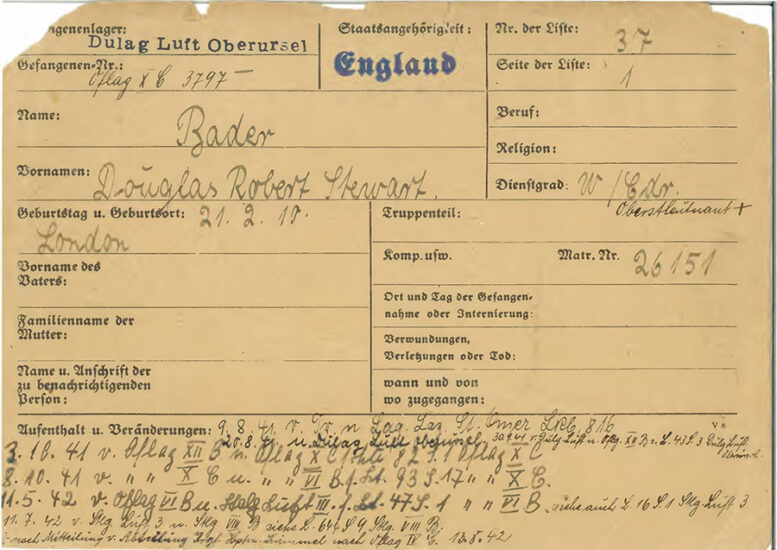 genenlager: Dulag Luft Oberursel
Staatsangehörigkeit: England
Nr. der Liste: 37
Gefangenen-Nr.: Oflag X C 3797 –
Seite der Liste: 1
Name: Bader
Beruf:
Religion:
Vornamen: Douglas Robert Stewart.
Dienstgrad: W/Cdr.
Oberstleutnant +
Geburtstag u. Geburtsort: 21. 2. 10.
London
Truppenteil:
Vorname des
Vaters:
Komp. usw.
Matr. Nr. 26151
Familienname der
Mutter:
Ort und Tag der Gefangen-
nahme oder Internierung:
Verwundungen,
Verletzungen oder Tod:
Name u. Anschrift der
zu benachrichtigenden
Person:
wann und von
wo zugegangen:
Aufenthalt u. Veränderungen: 9. 8. 41 v. Tr. n Lag. Laz. St. Omer 816
20. 8. 41 n. Dulag Luft Oberursel 30.9.41 v. Dulag Luft n. Oflag XII B
3. 10. 41 v. Oflag XII B n. Oflag X C 82 S. 1 Oflag X C
8. 10. 41 v. " " X C n. " " VI B S. 17 " " X C.
11. 5. 42 v. Oflag VI B n. Stalag Luft III. S 1 " " VI B. siehe auch L 16 S. 1 Skg Luft 3
11. 7. 42 v. Skg Luft 3 n. Skg VIII B siehe L. 64 S 9 Skg VIII B.
nach Mitteilung v. Abteilung nach Oflag IV C. 13. 8. 42